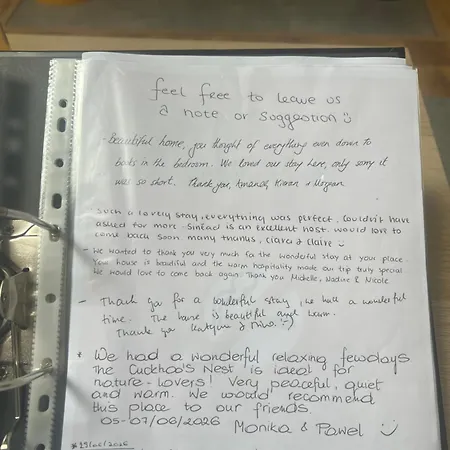 feel free to leave us
a note or suggestion
- Beautiful home, you thought of everything even down to
books in the bedroom. We loved our stay here, only sorry it
was so short. Thank you, Amanda, Kieran &
Such a lovely stay, everything was perfect, Couldn't have
asked for more. Sinéad is an excellent host. would love to
come back soon many thanks, Ciara & Claire
- We wanted to thank you very much for the wonderful stay at your place.
Your house is beautiful and the warm hospitality made our trip truly special
We would love to come back again. Thank you Michelle, Nadine & Nicole
- Thank you for a wonderful stay, we had a wonderful
time. The house is beautiful and warm.
Thank you & :-)
* We had a wonderful relaxing few days
The Cuckhoo's Nest is ideal for
nature-lovers! Very peaceful, quiet
and warm. We would recommend
this place to our friends.
05-07/06/2026 Monika & Pawel